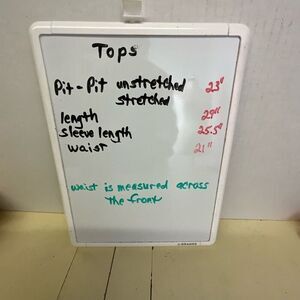 Tops
Pit - Pit unstretched 23"
stretched
length 29"
sleeve length 25.5"
waist 21"
waist is measured across
the front